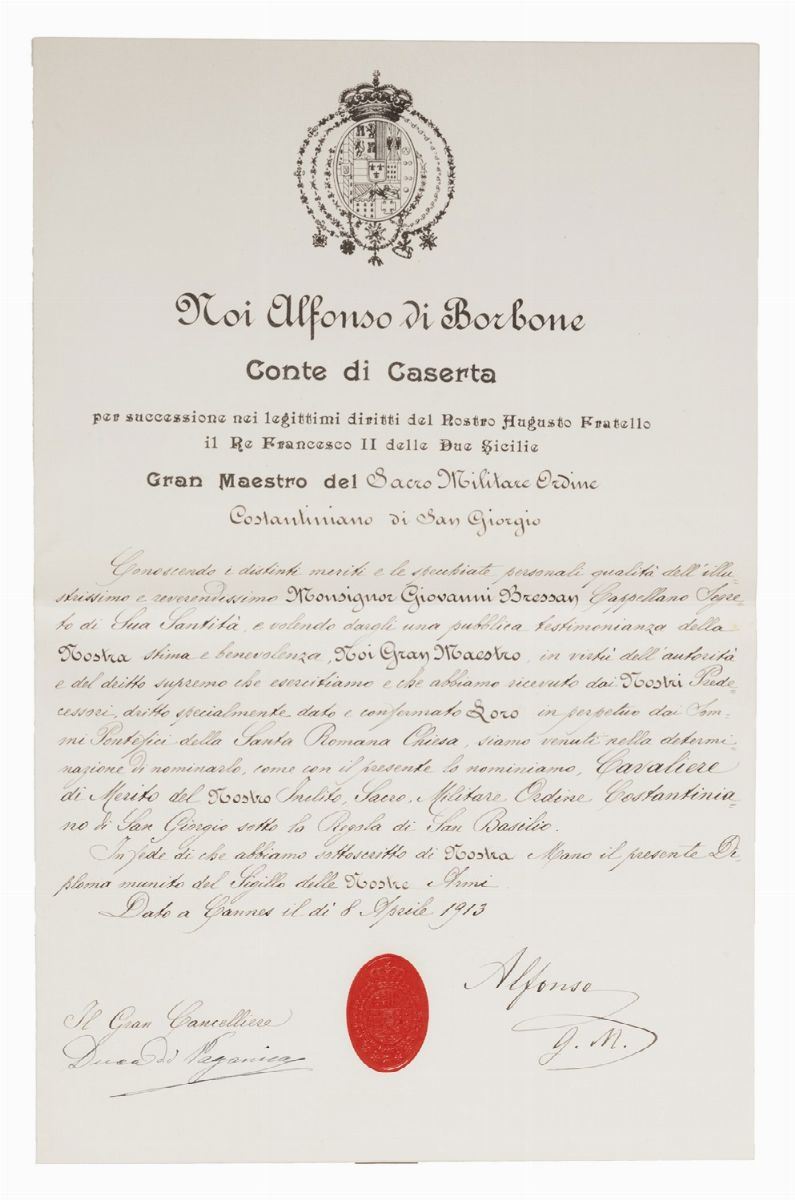 Noi Alfonso di Borbone
Conte di Caserta
per successione nei legittimi diritti del Nostro Augusto Fratello
il Re Francesco II delle Due Sicilie
Gran Maestro del Sacro Militare Ordine
Costantiniano di San Giorgio
Conoscendo i distinti meriti e le specchiate personali qualità dell'illu-
strissimo e reverendissimo Monsignor Giovanni Bressan Cappellano Segre-
to di Sua Santità, e volendo dargli una pubblica testimonianza della
Nostra stima e benevolenza, Noi Gran Maestro, in virtù dell'autorità
e del dritto supremo che esercitiamo e che abbiamo ricevuto dai Nostri Prede-
cessori, dritto specialmente dato e confermato Loro in perpetuo dai Som-
mi Pontefici della Santa Romana Chiesa, siamo venuti nella determi-
nazione di nominarlo, come con il presente lo nominiamo, Cavaliere
di Merito del Nostro Inclito, Sacro, Militare Ordine Costantinia-
no di San Giorgio sotto la Regola di San Basilio.
In fede di che abbiamo sottoscritto di Nostra Mano il presente Di-
ploma munito del Sigillo delle Nostre Armi.
Dato a Cannes il dì 8 Aprile 1913
Alfonso
G. M.
Il Gran Cancelliere
Duca di Paganica